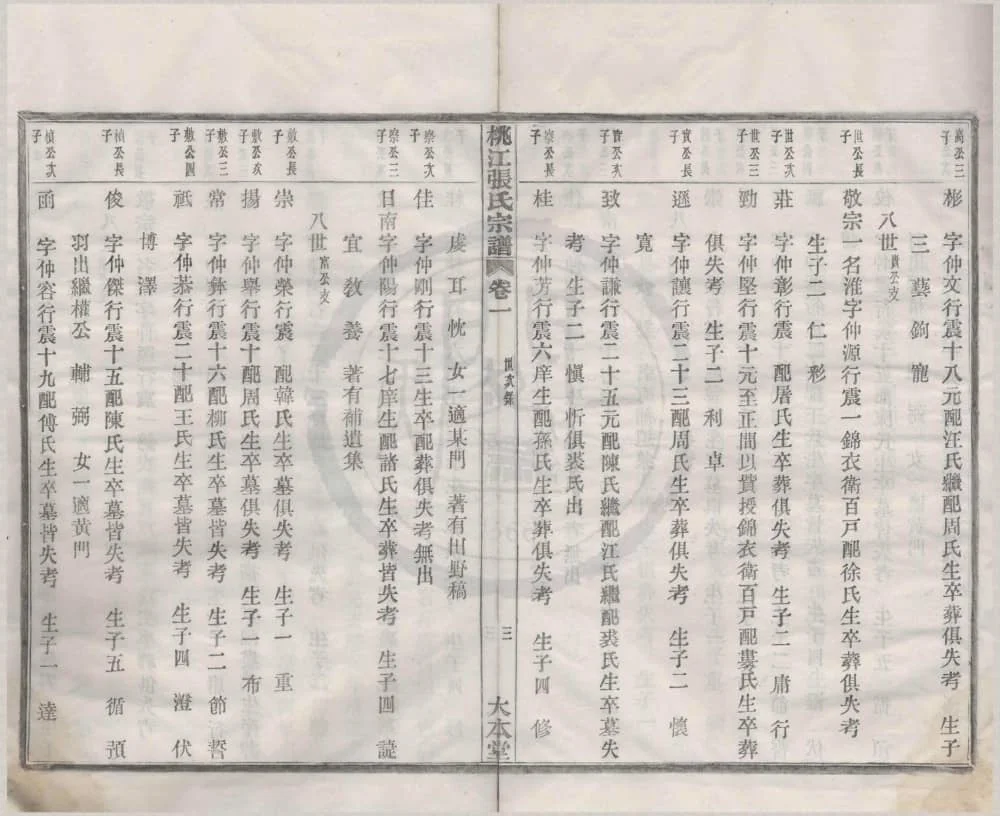 高公三子
彬 字仲文行震十八元配汪氏繼配周氏生卒葬俱失考 生子
三 藝 鉤 寵
八世實公支
世公長子
敬宗一名淮字仲源行震一錦衣衛百戶配徐氏生卒葬俱失考
生子二 仁 彩
世公次子
莊 字仲彰行震 配屠氏生卒葬俱失考 生子二 庸 行
世公三子
勁 字仲堅行震十元至正間以貲授錦衣衛百戶配婁氏生卒葬
俱失考 生子二 利 卓
實公長子
遜 字仲讓行震二十三配周氏生卒葬俱失考 生子二 懷
寬
實公次子
致 字仲謙行震二十五元配陳氏繼配江氏繼配裘氏生卒墓失
考 生子二 愼 忻俱裘氏出
察公長子
桂 字仲芳行震六庠生配孫氏生卒葬俱失考 生子四 修
桃江張氏宗譜 卷一 世次錄 三 大本堂
虔 耳 忱 女一適某門 著有田野稿
察公次子
佳 字仲剛行震十三生卒配葬俱失考無出
察公三子
日南 字仲陽行震十七庠生配諸氏生卒葬皆失考 生子四 諟
宜 敎 養 著有補遺集
八世富公支
敖公長子
崇 字仲榮行震 配韓氏生卒墓俱失考 生子一 重
敖公次子
揚 字仲舉行震十配周氏生卒墓俱失考 生子一 布
敖公三子
常 字仲彝行震十六配柳氏生卒墓皆失考 生子二 節 誓
敖公四子
祗 字仲恭行震二十配王氏生卒墓皆失考 生子四 澄 伏
博 澤
楨公長子
俊 字仲傑行震十五配陳氏生卒墓皆失考 生子五 循 頊
羽出繼權公 輔 弼 女一適黃門
楨公次子
函 字仲容行震十九配傅氏生卒墓皆失考 生子一 達